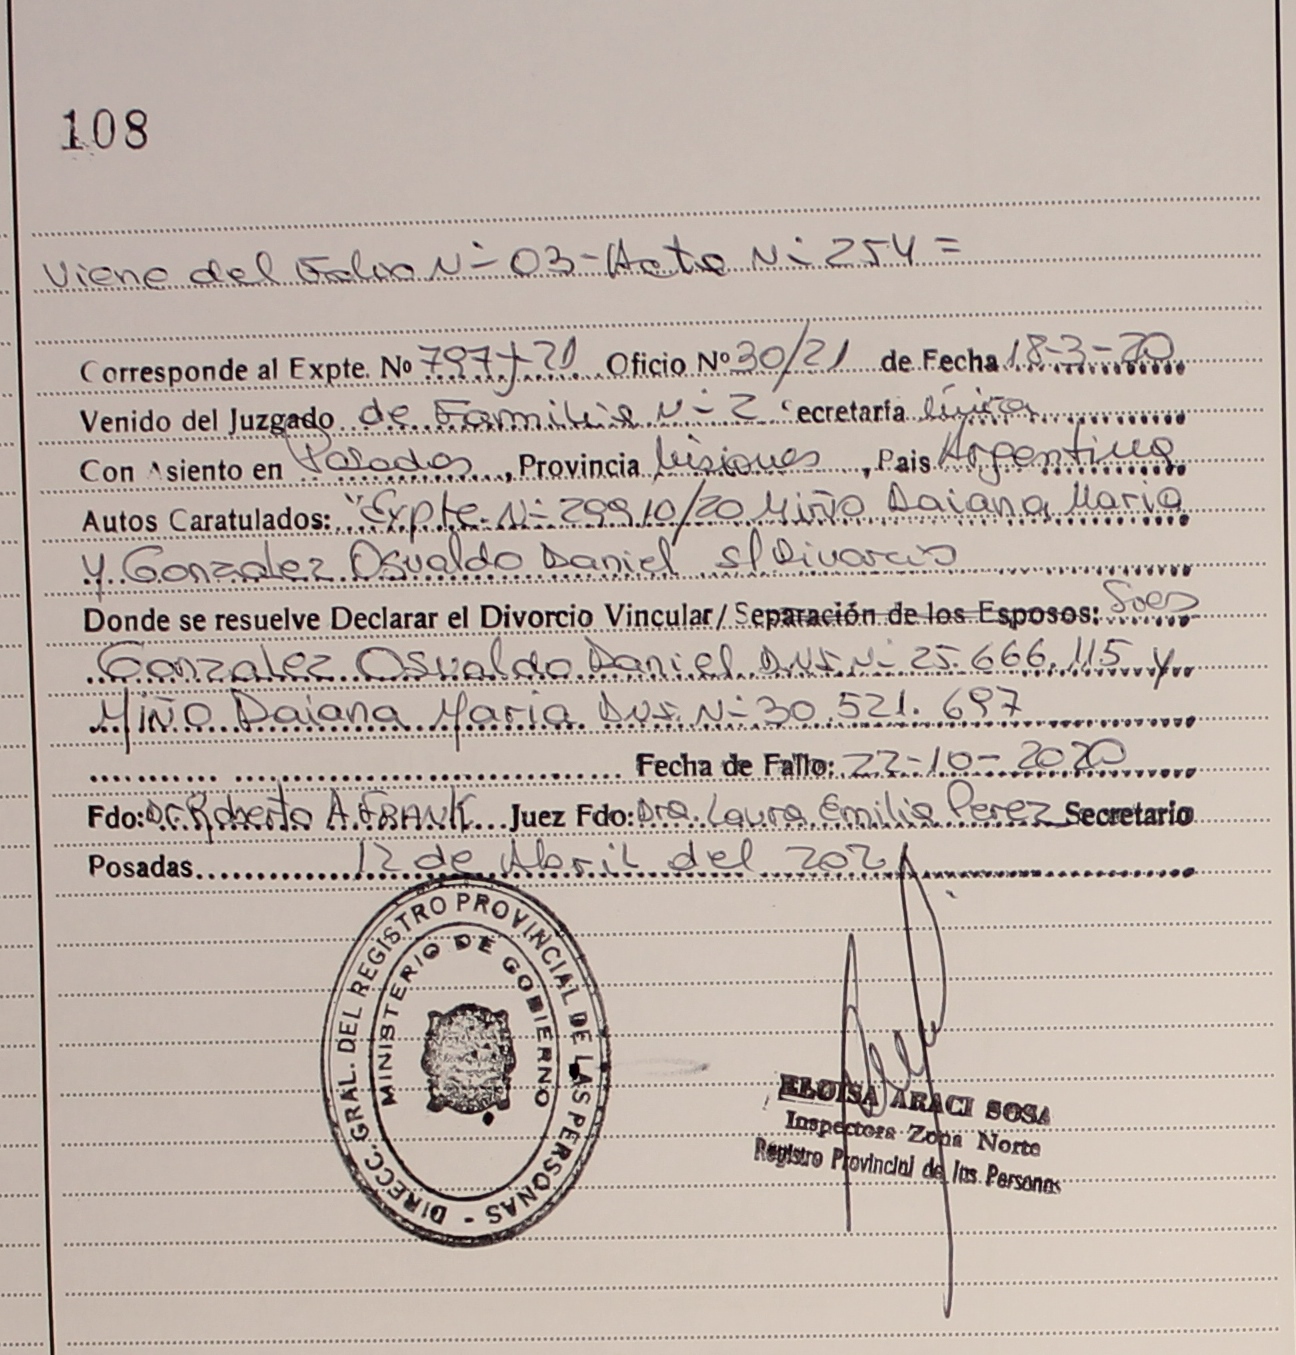 108
Viene del Folio N- 03-Acta N- 254 =
Corresponde al Expte. Nº 797-J-21 Oficio Nº 30/21 de Fecha 18-3-20
Venido del Juzgado de Familia N- 2 Secretaría única
Con Asiento en Posadas, Provincia Misiones, Pais Argentina
Autos Caratulados: "Expte. N- 29910/20 Miño Daiana Maria
y Gonzalez Osvaldo Daniel s/Divorcio
Donde se resuelve Declarar el Divorcio Vincular/ Separación de los Esposos: Sres
Gonzalez Osvaldo Daniel D.N.I. N- 25.666.115 y
Miño Daiana Maria D.N.I. N- 30.521.697
Fecha de Fallo: 22-10-2020
Fdo: Dr. Roberto A. FRANK Juez Fdo: Dra. Laura Emilia Perez Secretario
Posadas 12 de Abril del 2021
DIRECC. GRAL. DEL REGISTRO PROVINCIAL DE LAS PERSONAS -
MINISTERIO DE GOBIERNO
ELOISA ARACI SOSA
Inspectora Zona Norte
Registro Provincial de las Personas